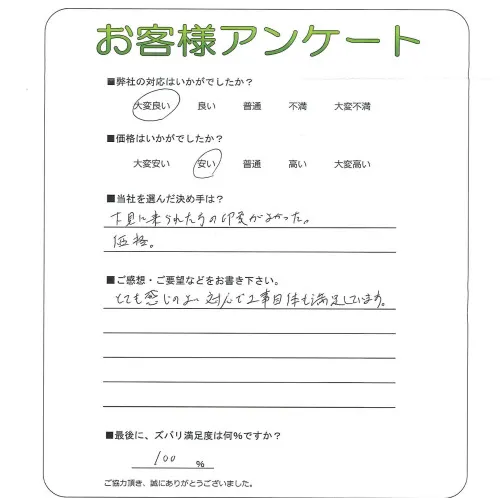 お客様アンケート
■弊社の対応はいかがでしたか？
大変良い 良い 普通 不満 大変不満
■価格はいかがでしたか？
大変安い 安い 普通 高い 大変高い
■当社を選んだ決め手は？
下見に来られた方の印象がよかった。
価格。
■ご感想・ご要望などをお書き下さい。
とても感じのよい対応で工事自体も満足しています。
■最後に、ズバリ満足度は何％ですか？
100 ％
ご協力頂き、誠にありがとうございました。